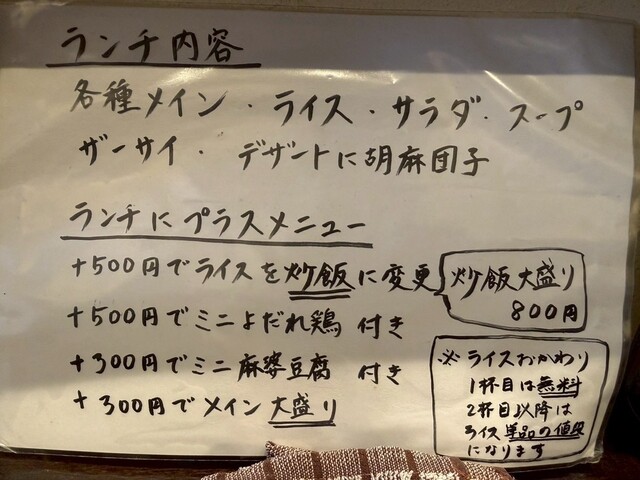 ランチ内容
各種メイン・ライス・サラダ・スープ
ザーサイ・デザートに胡麻団子
ランチにプラスメニュー
+500円でライスを炒飯に変更
炒飯大盛り
800円
+500円でミニよだれ鶏 付き
+300円でミニ麻婆豆腐 付き
+300円でメイン大盛り
※ライスおかわり
1杯目は無料
2杯目以降は
ライス単品の値段
になります